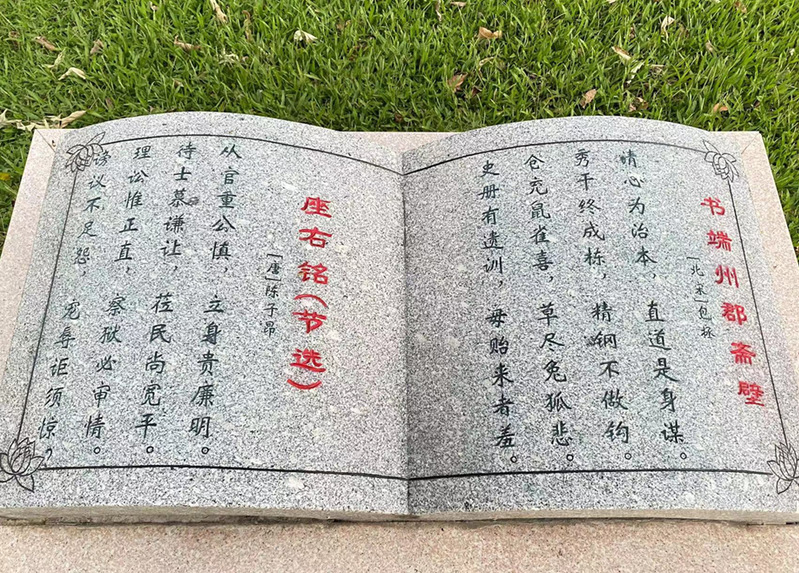 书端州郡斋壁
[北宋]包拯
清心为治本，直道是身谋。
秀干终成栋，精钢不做钩。
仓充鼠雀喜，草尽兔狐悲。
史册有遗训，毋贻来者羞。
座右铭（节选）
[唐]陈子昂
从官重公慎，立身贵廉明。
待士慕谦让，莅民尚宽平。
理讼惟正直，察狱必审情。
谤议不足怨，宠辱讵须惊？